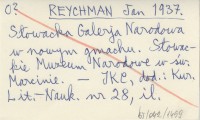 03
REYCHMAN Jan 1937.
Słowacka Galerja Narodowa
w nowym gmachu. Słowac-
kie Muzeum Narodowe w św.
Marcinie. — IKC, dod.: Kur.
Lit.-Nauk. nr 28, il.